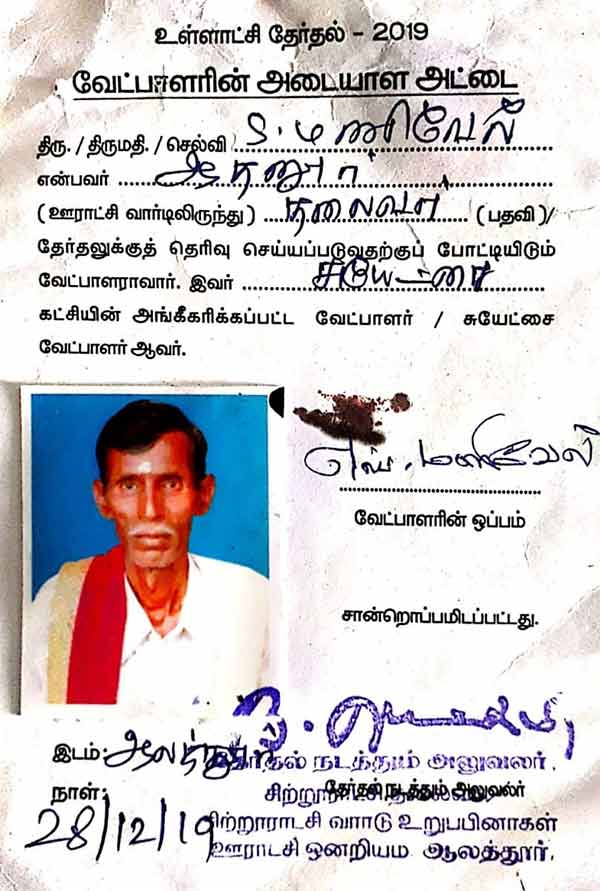 உள்ளாட்சி தேர்தல் - 2019
வேட்பாளரின் அடையாள அட்டை
திரு. / திருமதி. / செல்வி S. மணிவேல்
என்பவர் ஆதனூர்
(ஊராட்சி வார்டிலிருந்து) தலைவர் (பதவி)/
தேர்தலுக்குத் தெரிவு செய்யப்படுவதற்குப் போட்டியிடும்
வேட்பாளராவார். இவர் சுயேட்சை
கட்சியின் அங்கீகரிக்கப்பட்ட வேட்பாளர் / சுயேட்சை
வேட்பாளர் ஆவர்.
எஸ். மணிவேல்
வேட்பாளரின் ஒப்பம்
சான்றொப்பமிடப்பட்டது.
இடம்: ஆலத்தூர்
தேர்தல் நடத்தும் அலுவலர்.
நாள்: தேர்தல் நடத்தும் அலுவலர்
சிற்றூராட்சி தலைவர்
28/12/19
சிற்றூராடசி வாாடு உறுபபினாகள்
ஊராட்சி ஒனறியம ஆலத்தூர்.